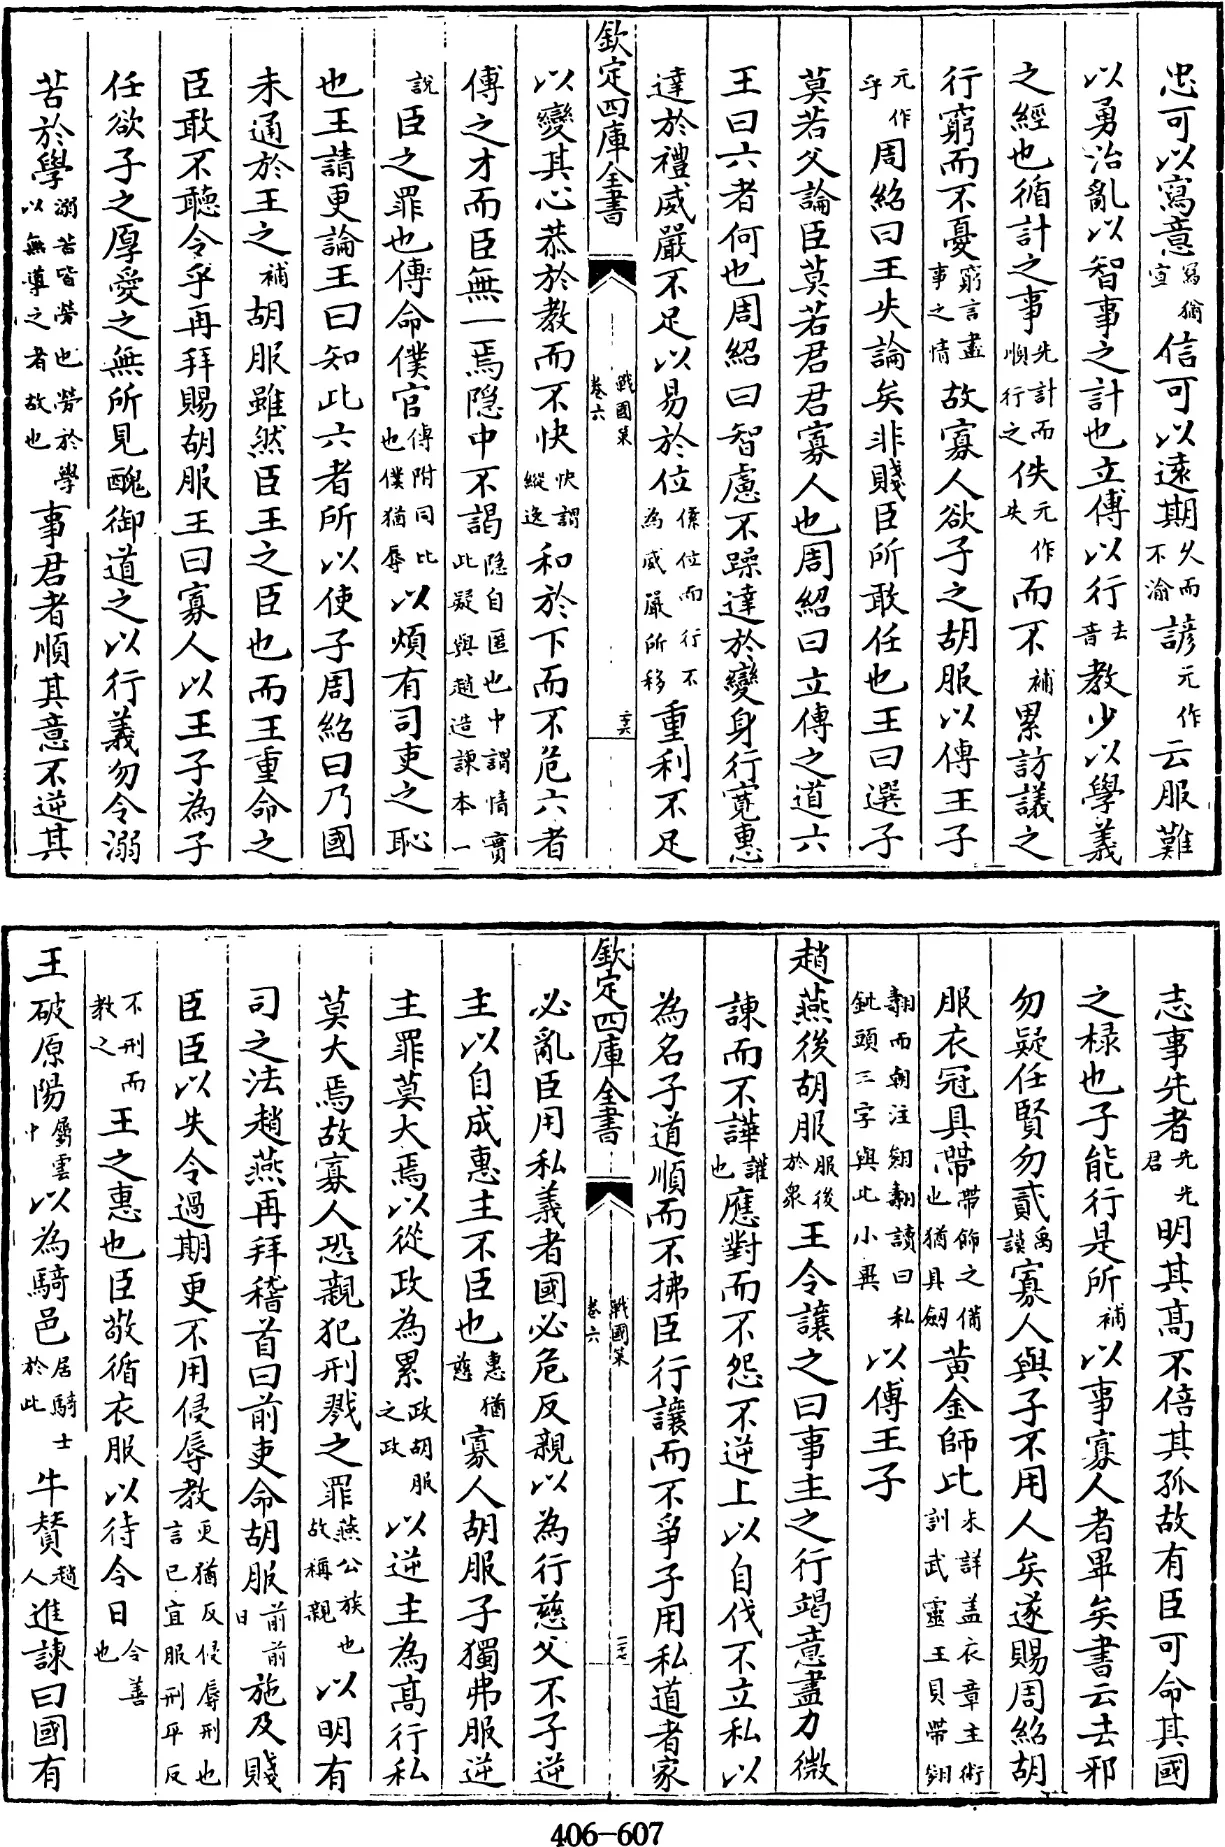 忠可以寫意寫猶宣信可以遠期久而不渝諺元作云服難
以勇治亂以智事之計也立傅以行去音教少以學義
之經也循計之事先計而順行之佚元作失而不補累訪議之
行窮而不憂窮言盡事之情故寡人欲子之胡服以傅王子
元作乎周紹曰王失論矣非賤臣所敢任也王曰選子
莫若父論臣莫若君君寡人也周紹曰立傅之道六
王曰六者何也周紹曰智慮不躁達於變身行寬惠
達於禮威嚴不足以易於位係位而行不為威嚴所移重利不足
欽定四庫全書 戰國策 卷六 二十六
以變其心恭於教而不快快謂縱逸和於下而不危六者
傅之才而臣無一焉隠中不謁隠自匿也中謂情實此疑與趙造諫本一
說臣之罪也傅命僕官傅附同比也僕猶辱以煩有司吏之恥
也王請更論王曰知此六者所以使子周紹曰乃國
未通於王之補胡服雖然臣王之臣也而王重命之
臣敢不聽令乎再拜賜胡服王曰寡人以王子為子
任欲子之厚愛之無所見醜御道之以行義勿令溺
苦於學溺苦皆勞也勞於學以無導之者故也事君者順其意不逆其
志事先者先先君明其高不倍其孤故有臣可命其國
之祿也子能行是所補以事寡人者畢矣書云去邪
勿疑任賢勿貳禹謨寡人與子不用人矣遂賜周紹胡
服衣冠具帶帶飾之備也猶具劒黃金師比未詳盖衣章主術訓武靈王貝帶鵕
䴊而朝注鵕䴊讀曰私鈚頭三字與此小異以傅王子
趙燕後胡服服後於衆王令讓之曰事主之行竭意盡力微
諫而不譁讙也應對而不怨不逆上以自伐不立私以
為名子道順而不拂臣行讓而不爭子用私道者家
欽定四庫全書 戰國策 卷六 二十七
必亂臣用私義者國必危反親以為行慈父不子逆
主以自成惠主不臣也惠猶慈寡人胡服子獨弗服逆
主罪莫大焉以從政為累政胡服之政以逆主為高行私
莫大焉故寡人恐親犯刑戮之罪燕公族也故稱親以明有
司之法趙燕再拜稽首曰前吏命胡服前前日施及賤
臣臣以失令過期更不用侵辱教更猶反侵辱刑也言已宜服刑乎反
不刑而教之王之惠也臣敬循衣服以待今日今善也
王破原陽屬雲中以為騎邑居騎士於此牛賛趙人進諫曰國有
406-607